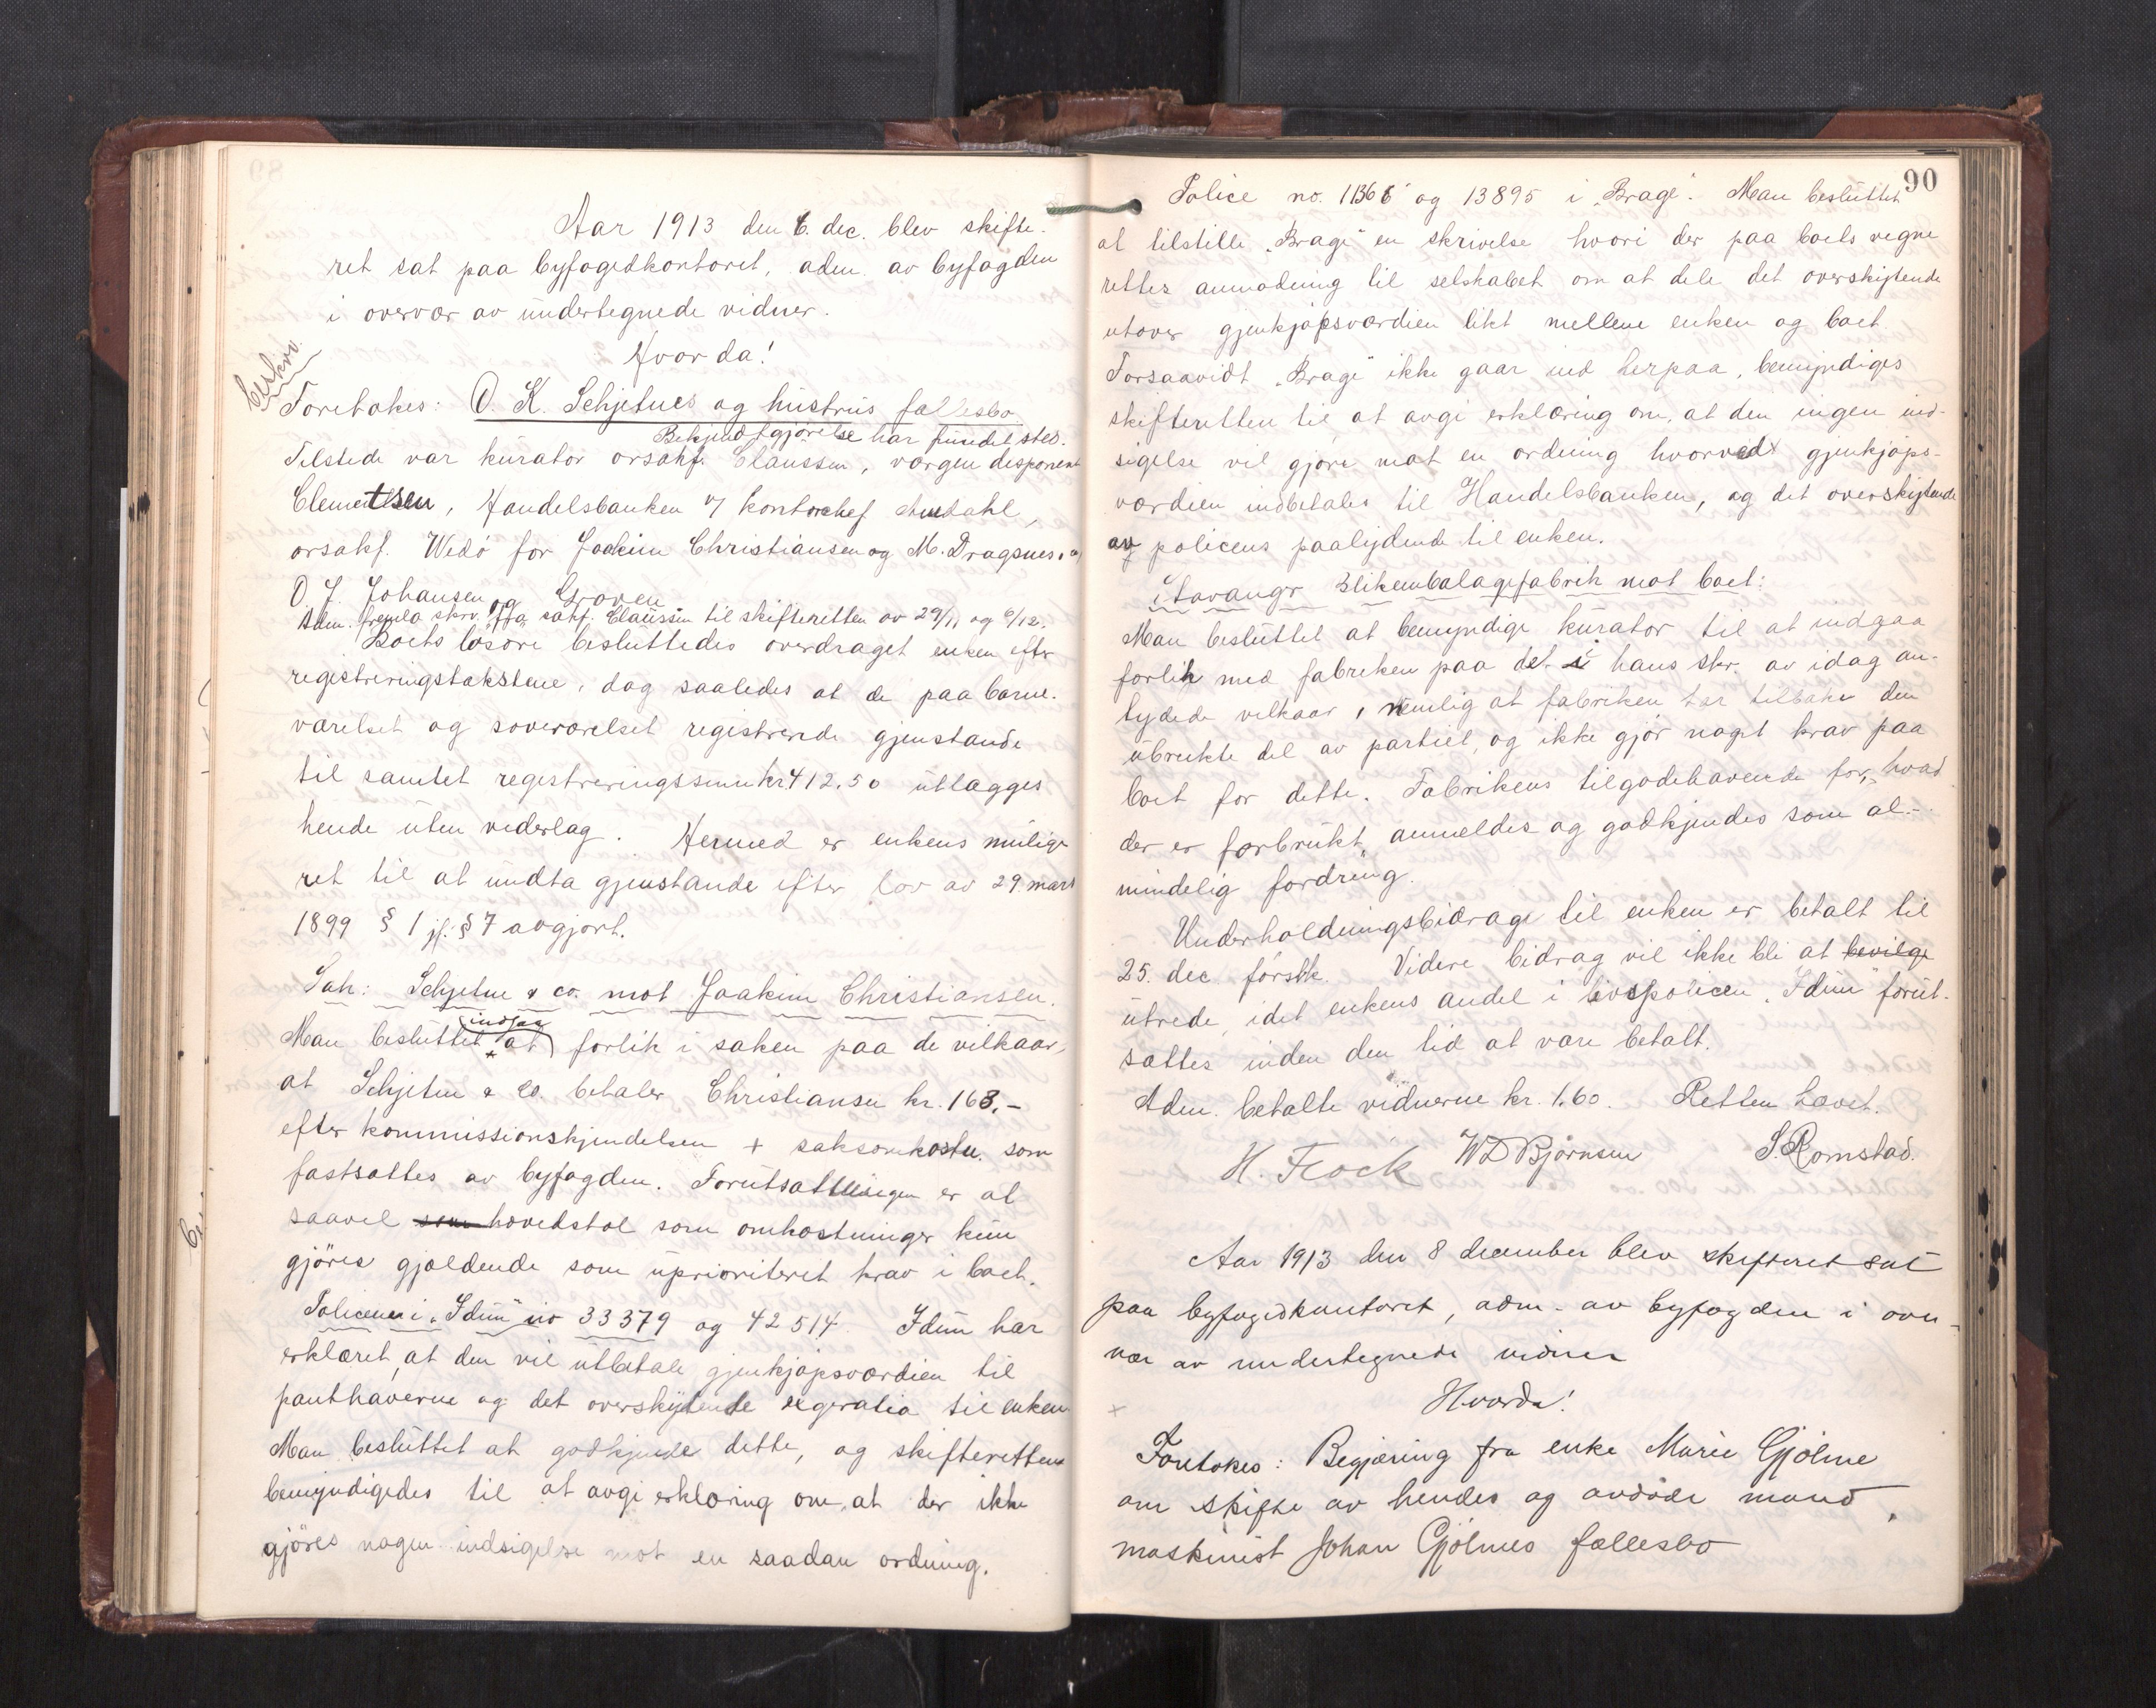 Aar 1913 den 6. dec. blev skifte-
ret sat paa byfogedkontoret, adm. av byfogden
i overvær av undertegnede vidner.
Hvorda!
beskrv.
Foretokes: O. K. Schjetnes og hustrus fællesbo
Bekjendtgjörelse har fundet sted.
Tilstede var kurator orsakf. Claussen, vergen disponent
Clementsen, Handelsbanken v/ kontorchef
orsakf. Wedö for Joakim Christiansen og M. Dragsnes
O. J. Johansen og Groven
Adm. fremla skrv. fra sakf. Claussen til skifteretten av 29/11 og 6/12.
Boets lösöre besluttedes overdraget enken efter
registreringstakstene, dog saaledes at de paa barne-
værelset og soveværelset registrerede gjenstande
til samlet registreringssum kr 412.50 utlægges
hende uten vederlag. Hermed er enkens mulige
ret til at undta gjenstande efter lov av 29 mars
1899 § 1 jf. § 7 avgjort.
Sak: Schjetne & co. mot Joakim Christiansen.
indgaa
Man besluttet at forlik i saken paa de vilkaar,
at Schjetne & co. betaler Christiansen kr. 163.-
efter kommissionskjendelsen + saksomkostn. som
fastsættes av byfogden. Forutsætningen er at
saavel som hovedstol som omkostninger kun
gjöres gjældende som uprioritert krav i boet.
Policerne i "Idun" no 33379 og 42514. Idun har
erklæret, at den vil utbetale gjenkjöpsværdien til
panthaverne og det overskytende exgratia til enken
Man besluttet at godkjende dette, og skifteretten
bemyndigedes til at avgi erklæring om, at der ikke
gjöres nogen indsigelse mot en saadan ordning.
90
Police no. og 13895 i "Brage". Man besluttet
at tilstille "Brage" en skrivelse hvori der paa boets vegne
rettes anmodning til selskabet om at dele det overskytende
utover gjenkjöpsværdien likt mellem enken og boet
Forsaavidt "Brage" ikke gaar ind herpaa, bemyndiges
skifteretten til at avgi erklæring om, at den ingen ind-
sigelse vil gjöre mot en ordning hvorved gjenkjöps-
værdien indbetales til Handelsbanken, og det overskytende
av policens paalydende til enken.
Stavangr Blikembalagefabrik mot boet:
Man besluttet at bemyndige kurator til at indgaa
forlik med fabriken paa det i hans skr. av idag an-
tydede vilkaar, nemlig at fabriken tar tilbake den
ubrukte del av partiet, og ikke gjör noget krav paa
boet for dette. Fabrikens tilgodehavende for, hvad
der er forbrukt, anmeldes og godkjendes som al-
mindelig fordring.
Underholdningsbidrage til enken er betalt til
25. dec förstk. Videre bidrag vil ikke bli at bevilge
utrede, idet enkens andel i livspolicen "Idun" forut-
sættes inden den tid at være betalt.
Adm. betalte vidnerne kr. 1.60. Retten hævet.
H. Flock WD Björnsen S. Romstad.
Aar 1913 den 8 december blev skifteret sat
paa byfogedkontoret, adm. av byfogden i over-
vær av undertegnede vidner
Hvorda!
Foretokes: Begjæring fra enke Marie Gjölme
om skifte av hendes og avdöde mand,
maskinist Johan Gjölmes fællesbo